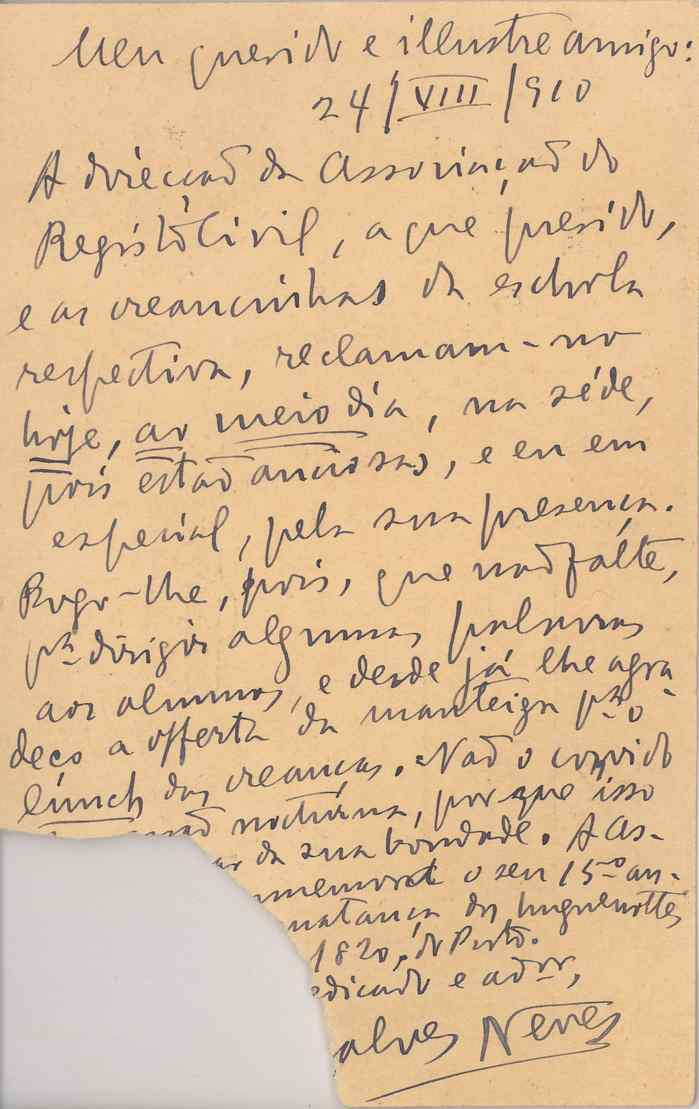 Meu querido e illustre amigo:
24/VIII/910
A direcçaõ da Associaçaõ do
Registo Civil, a que presido,
e as creancinhas da eschola
respectiva, reclamam-no
hoje, ao meio dia, na séde,
pois estaõ anciosas, e eu em
especial, pela sua presença.
Rogo-lhe, pois, que naõ falte,
pª dirigir algumas palavras
aos alumnos, e desde já lhe agra
deço a offerta da manteiga pª o
lunch das creanças. Naõ o convido
nocturna, porque isso
ar da sua bondade. A As-
memora o seu 15º an-
matança dos huguenottes
1820, do Porto.
edicado e ador,
alves Neves